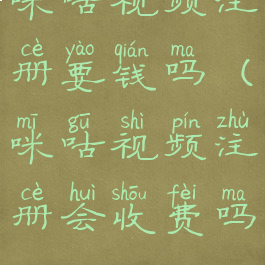 咪咕视频注
cè yào qián ma
册要钱吗（
mī gū shì pín zhù
咪咕视频注
cè huì shōu fèi ma
册会收费吗